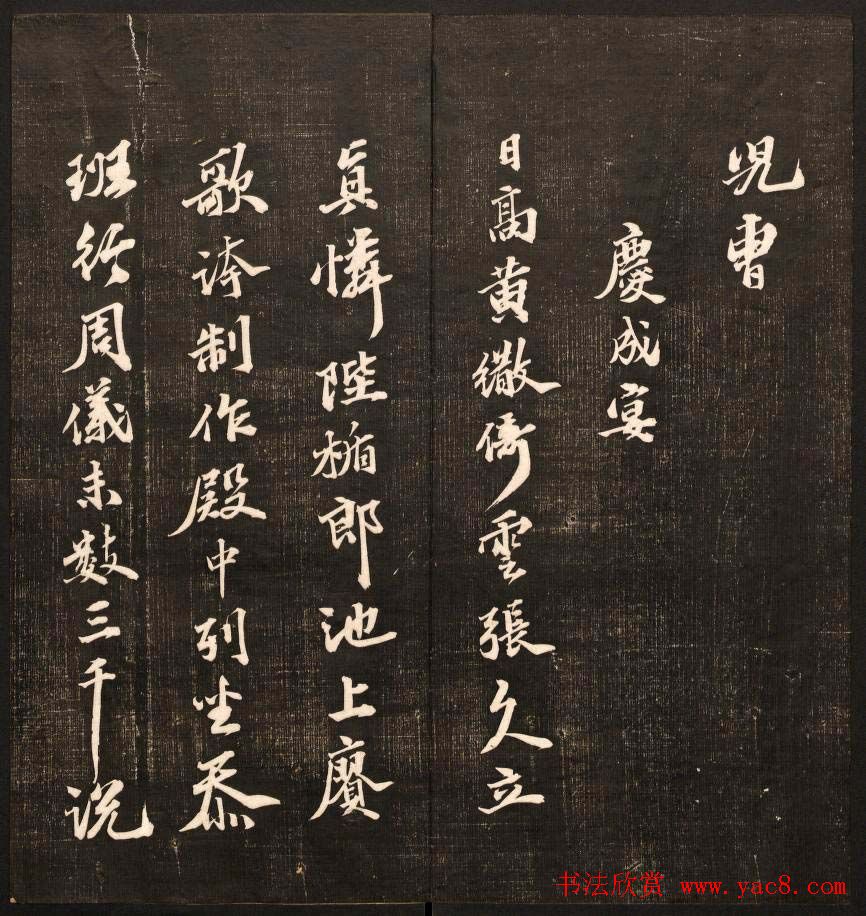 児曹
慶成宴
日高黄繖倚雲張久立
真憐陛楯郎池上賡
歌誇制作殿中列坐忝
班行周儀未數三千說
书法欣赏 www.yac8.com